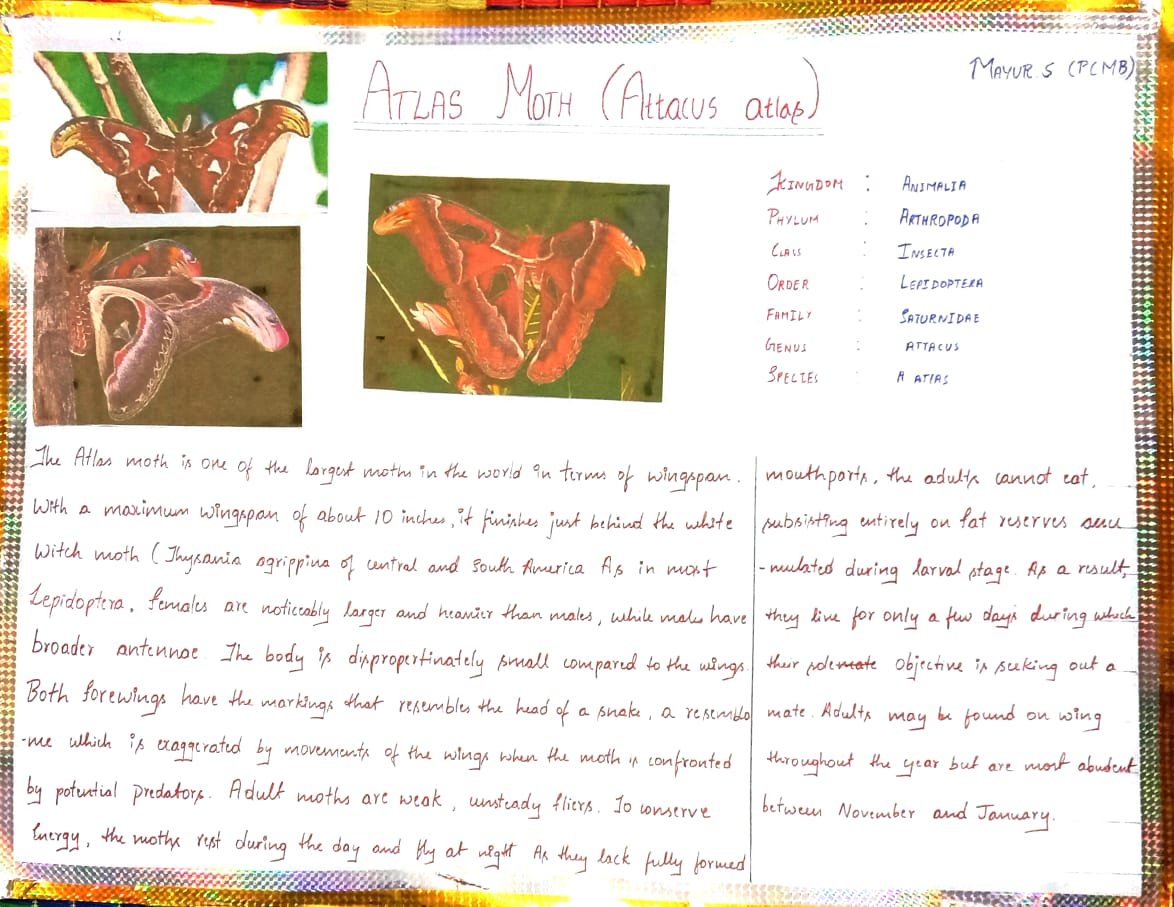 MAYUR. S (PCMB)
ATLAS MOTH (Attacus atlas)
KINGDOM : ANIMALIA
PHYLUM : ARTHROPODA
CLASS : INSECTA
ORDER : LEPIDOPTERA
FAMILY : SATURNIDAE
GENUS : ATTACUS
SPECIES : A ATLAS
The Atlas moth is one of the largest moths in the world in terms of wingspan.
With a maximum wingspan of about 10 inches, it finishes just behind the white
Witch moth (Thysania agrippina of central and South America As in most
Lepidoptera, females are noticeably larger and heavier than males, while males have
broader antennae The body is dispropertinately small compared to the wings.
Both forewings have the markings that resembles the head of a snake, a resembla
-nce which is exaggerated by movements of the wings when the moth is confronted
by potential predators. Adult moths are weak, unsteady fliers. To conserve
Energy, the moths rest during the day and fly at night As they lack fully formed
mouthparts, the adults cannot eat,
subsisting entirely on fat reserves accu
-mulated during larval stage. As a result,
they live for only a few days during which
their sole mate objective is seeking out a
mate. Adults may be found on wing
throughout the year but are most abudent
between November and January.